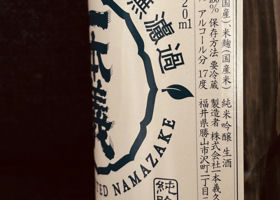 20ml
無濾過
TED NAMAZAKE
純
純米吟醸 生酒
国産)・米麹(国産米)
保存方法 要冷蔵
アルコール分 17度
製造者 株式会社一本義久
福井県勝山市沢町一丁目